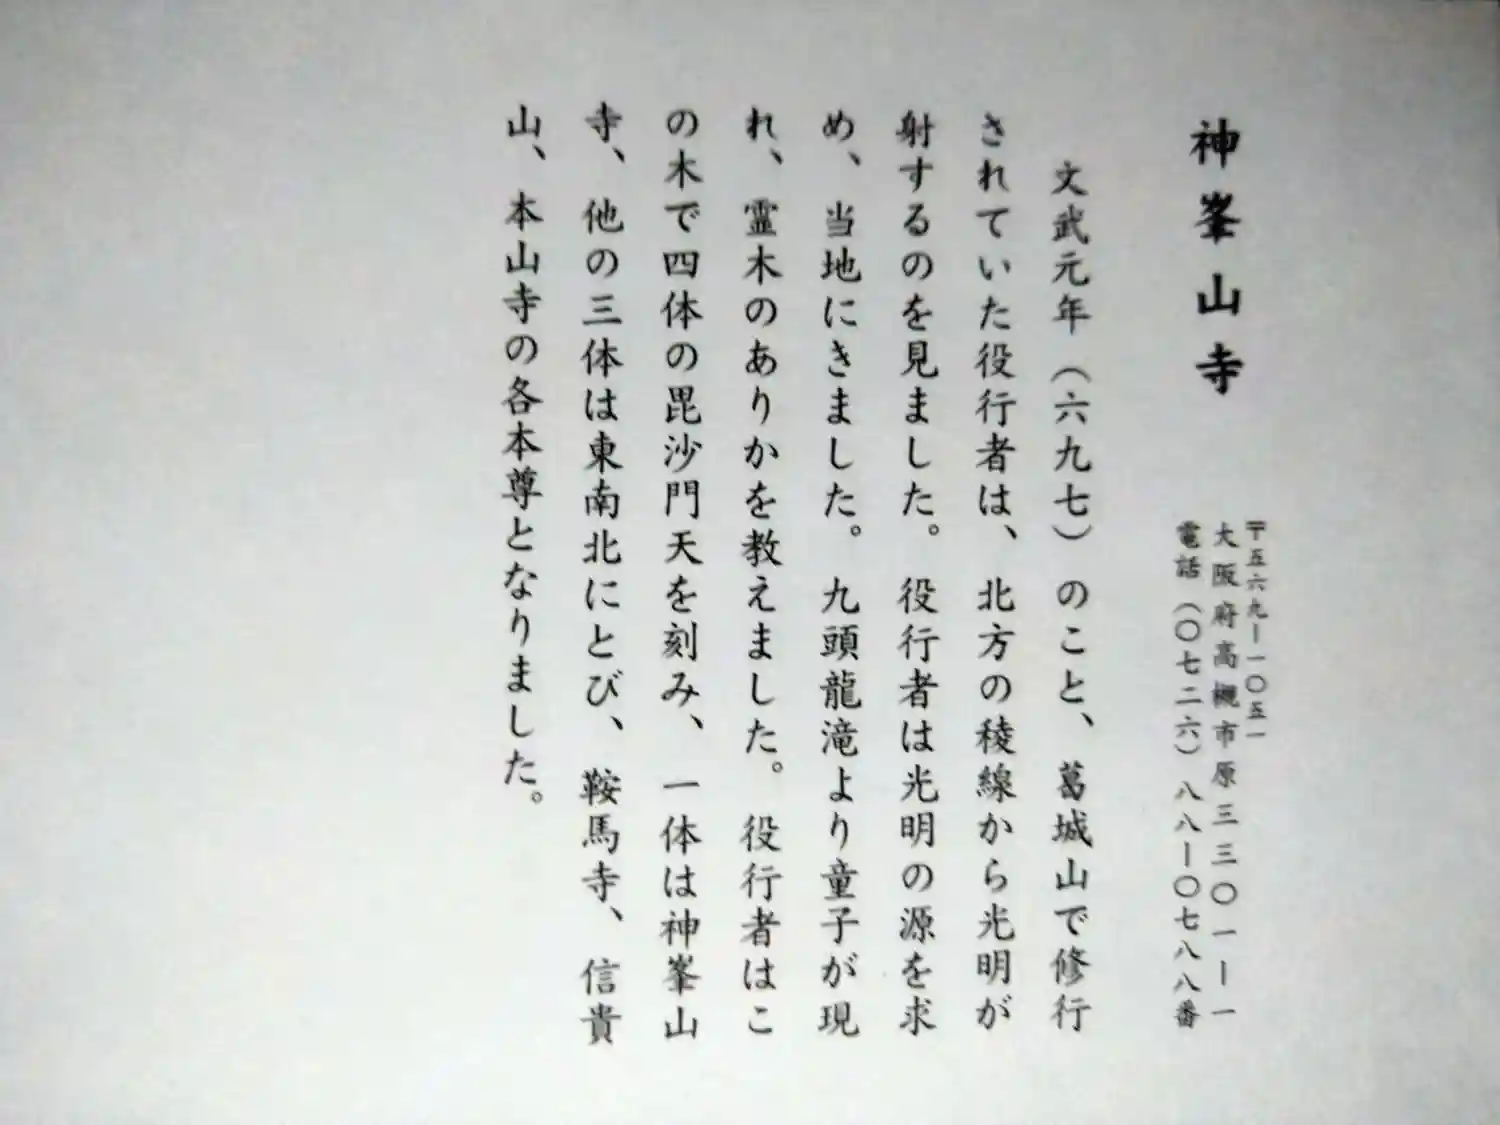 神峯山寺
〒五六九ー一〇五一
大阪府高槻市原三三〇一ー一
電話(〇七二六)八八ー〇七八八番
文武元年(六九七)のこと、葛城山で修行
されていた役行者は、北方の稜線から光明が
射するのを見ました。役行者は光明の源を求
め、当地にきました。九頭龍滝より童子が現
れ、霊木のありかを教えました。役行者はこ
の木で四体の毘沙門天を刻み、一体は神峯山
寺、他の三体は東南北にとび、鞍馬寺、信貴
山、本山寺の各本尊となりました。